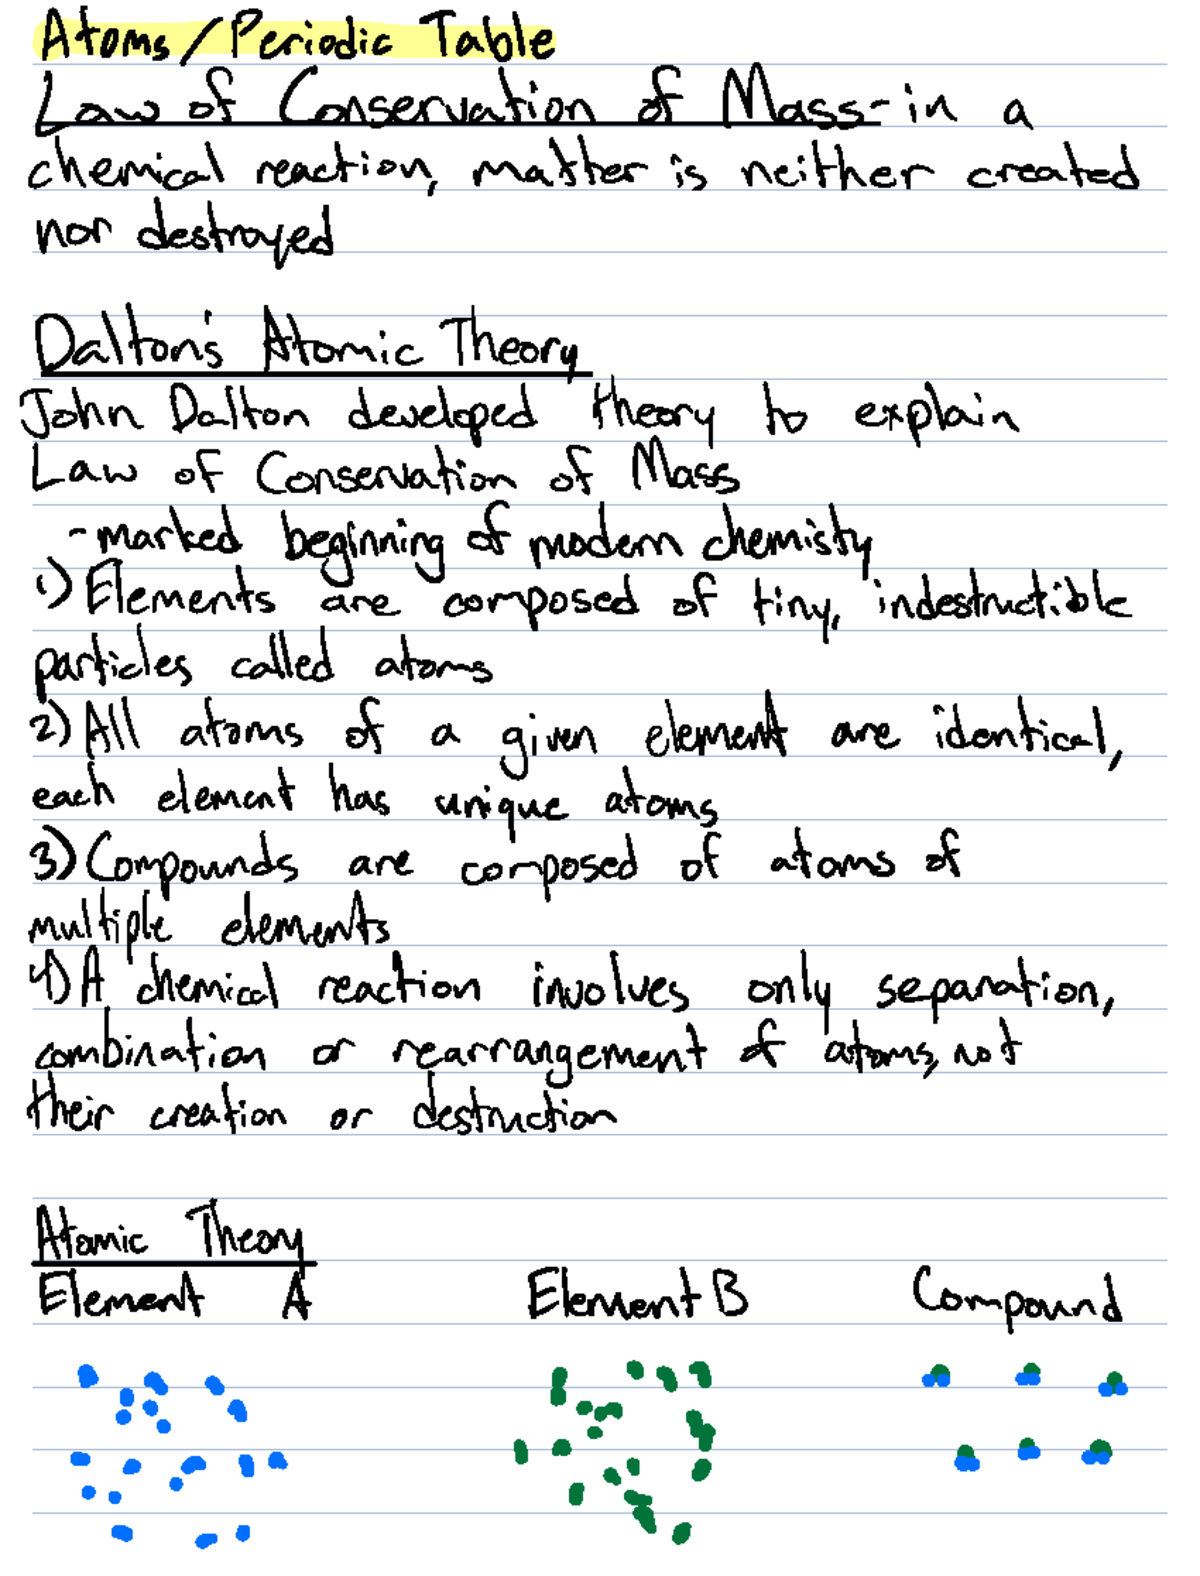 Atoms/Periodic Table
Law of Conservation of Mass- in a
chemical reaction, matter is neither created
nor destroyed
Dalton's Atomic Theory
John Dalton developed theory to explain
Law of Conservation of Mass
- marked beginning of modern chemistry
1) Elements are composed of tiny, indestructible
particles called atoms
2) All atoms of a given element are identical,
each element has unique atoms
3) Compounds are composed of atoms of
multiple elements
4) A chemical reaction involves only separation,
combination or rearrangement of atoms, not
their creation or destruction
Atomic Theory
Element A Element B Compound